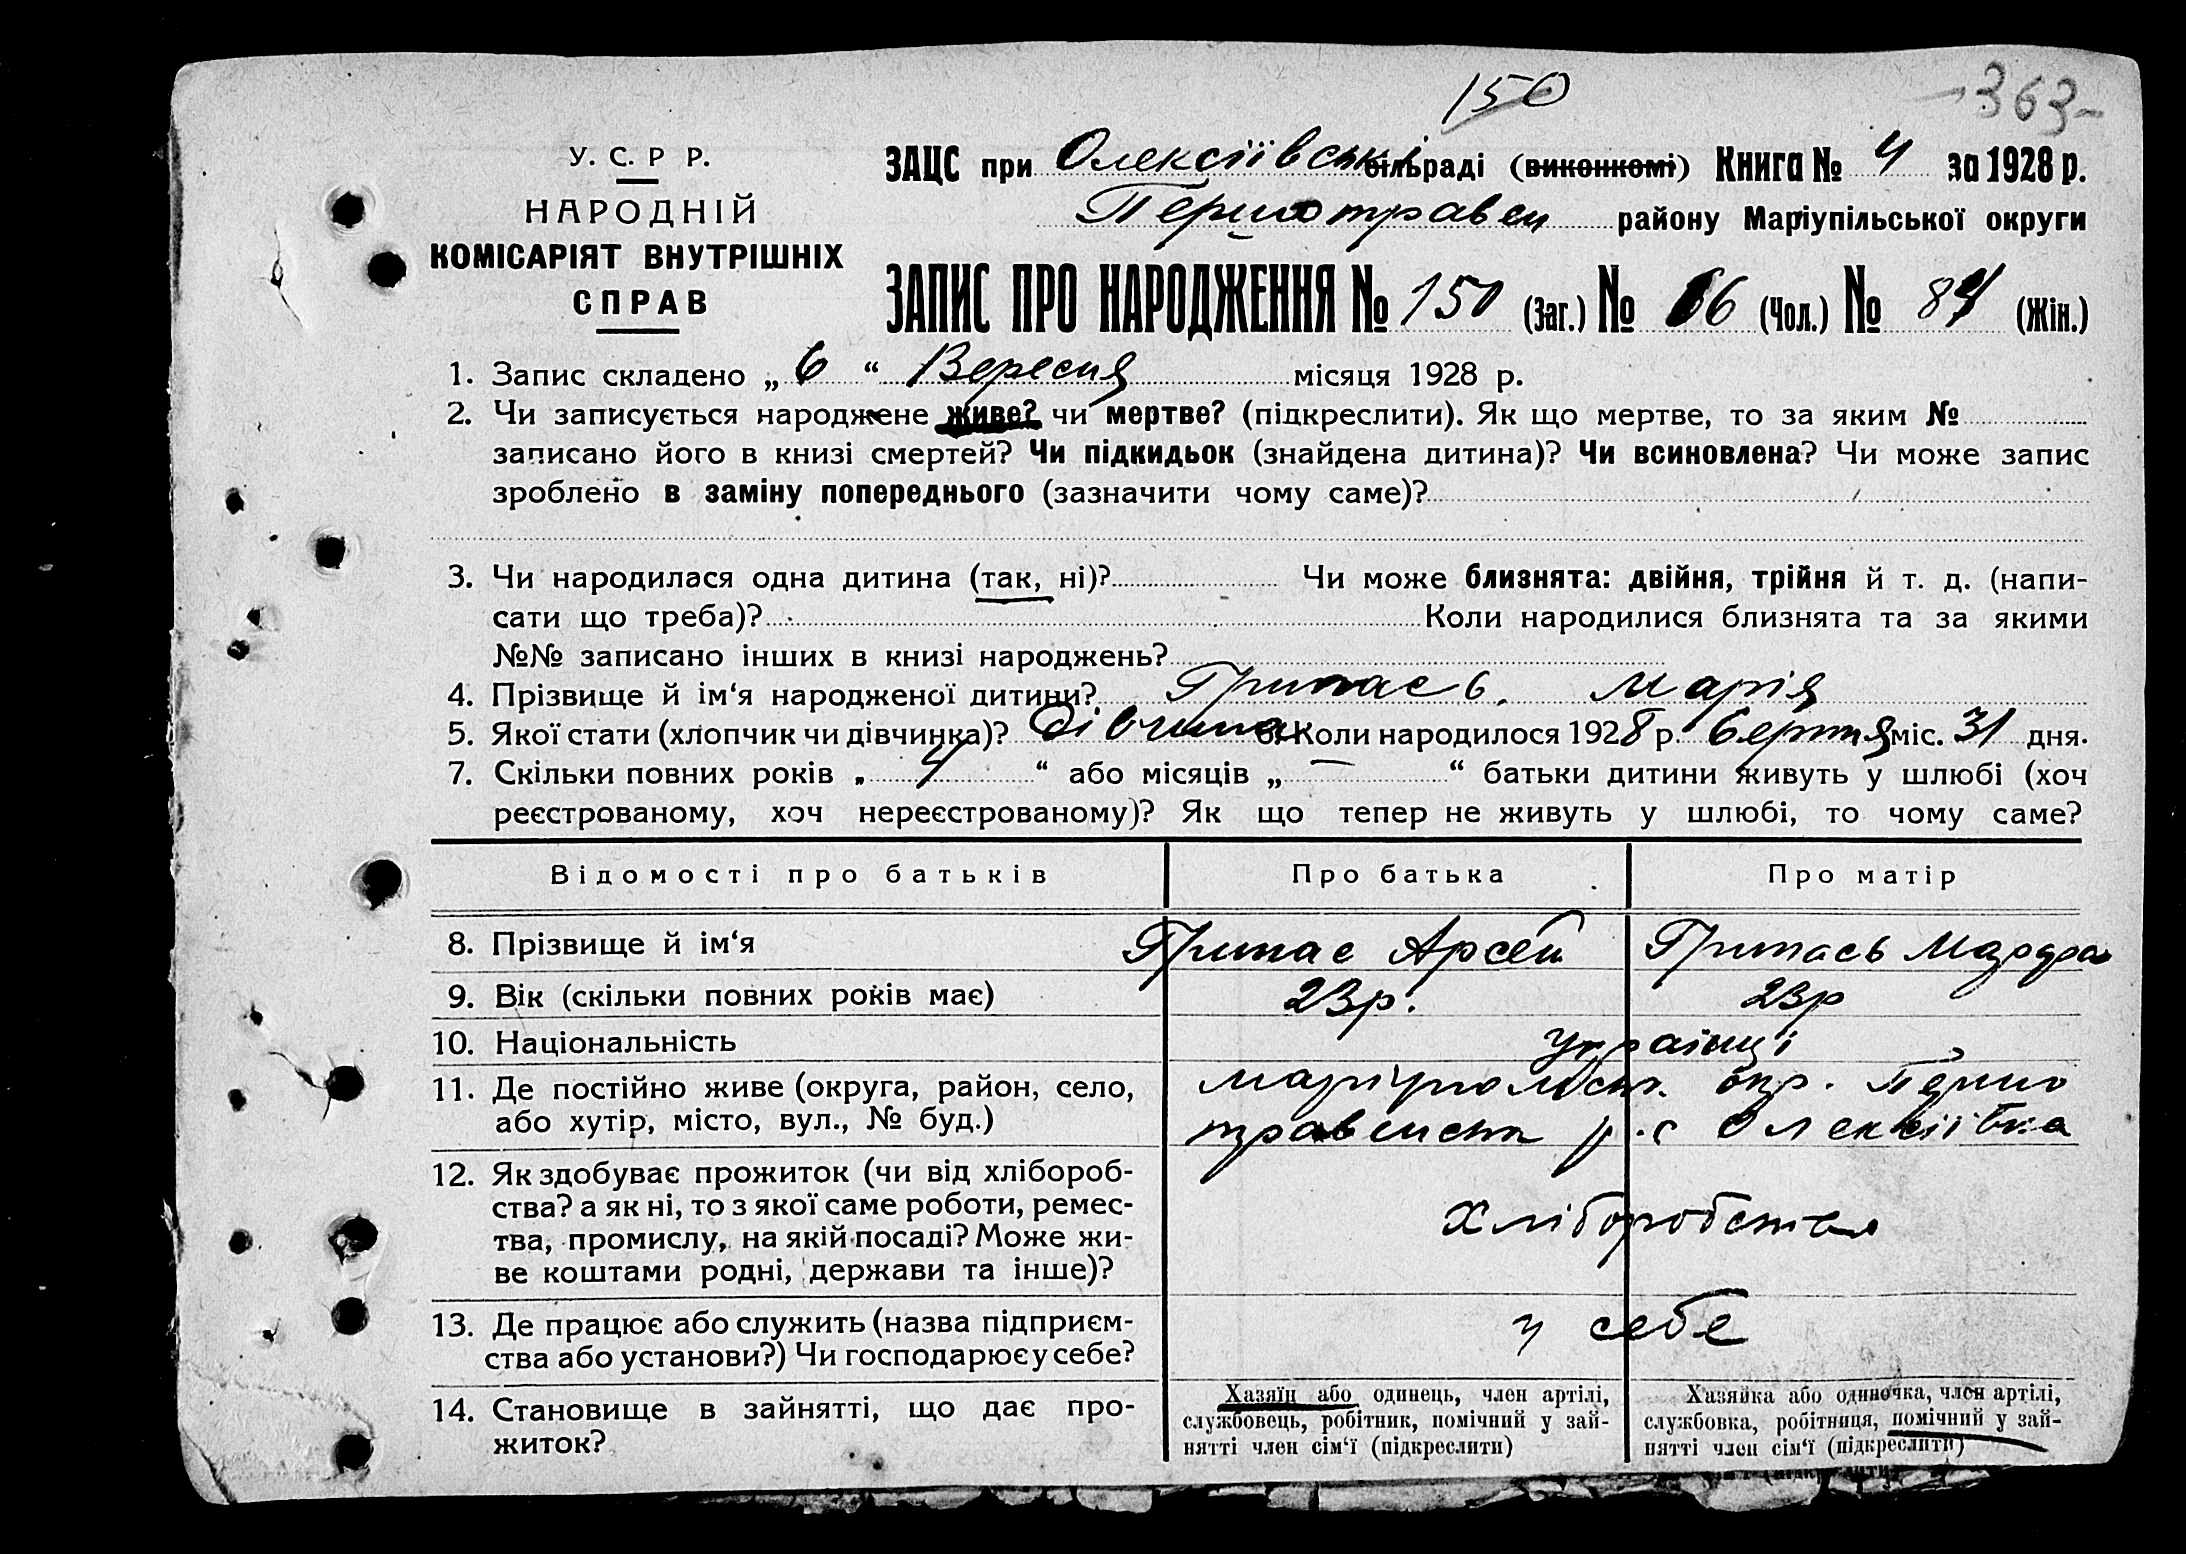 150
363
У. С. Р Р.
НАРОДНІЙ
КОМІСАРІЯТ ВНУТРІШНІХ
СПРАВ
ЗАЦС при Олексіївські сільраді (виконкомі) Книга № 4 за 1928 р.
Першотравен району Маріупільської округи
ЗАПИС ПРО НАРОДЖЕННЯ № 150 (Заг.) № 66 (Чол.) № 84 (Жін.)
1. Запис складено „ 6 “ Вересня місяця 1928 р.
2. Чи записується народжене живе? чи мертве? (підкреслити). Як що мертве, то за яким №
записано його в книзі смертей? Чи підкидьок (знайдена дитина)? Чи всиновлена? Чи може запис
зроблено в заміну попереднього (зазначити чому саме)?
3. Чи народилася одна дитина (так, ні)? Чи може близнята: двійня, трійня й т. д. (напи-
сати що треба)? Коли народилися близнята та за якими
№№ записано інших в книзі народжень?
4. Прізвище й ім‘я народженої дитини? Грипась Марія
5. Якої стати (хлопчик чи дівчинка)? Дівчина 6. Коли народилося 1928 р. Серпня міс. 31 дня.
7. Скільки повних років „ 4 “ або місяців „ — “ батьки дитини живуть у шлюбі (хоч
реєстрованому, хоч нереєстрованому)? Як що тепер не живуть у шлюбі, то чому саме?
Відомості про батьків Про батька Про матір
8. Прізвище й ім‘я Грипас Арсей Грипась
9. Вік (скільки повних років має) 23р. 23р
10. Національність Українці
11. Де постійно живе (округа, район, село, Маріупольск. окр. Першо
або хутір, місто, вул., № буд.) травенськ р. с Олексіївка
12. Як здобуває прожиток (чи від хлібороб-
ства? а як ні, то з якої саме роботи, ремес-
тва, промислу, на якій посаді? Може жи-
ве коштами родні, держави та інше)?
Хліборобства
13. Де працює або служить (назва підприєм-
ства або установи?) Чи господарює у себе?
у себе
14. Становище в зайнятті, що дає про-
житок?
Хазяїн або одинець, член артілі,
службовець, робітник, помічний у зай-
нятті член сім‘ї (підкреслити)
Хазяйка або одиночка, член артілі,
службовка, робітниця, помічний у зай-
нятті член сім‘ї (підкреслити)